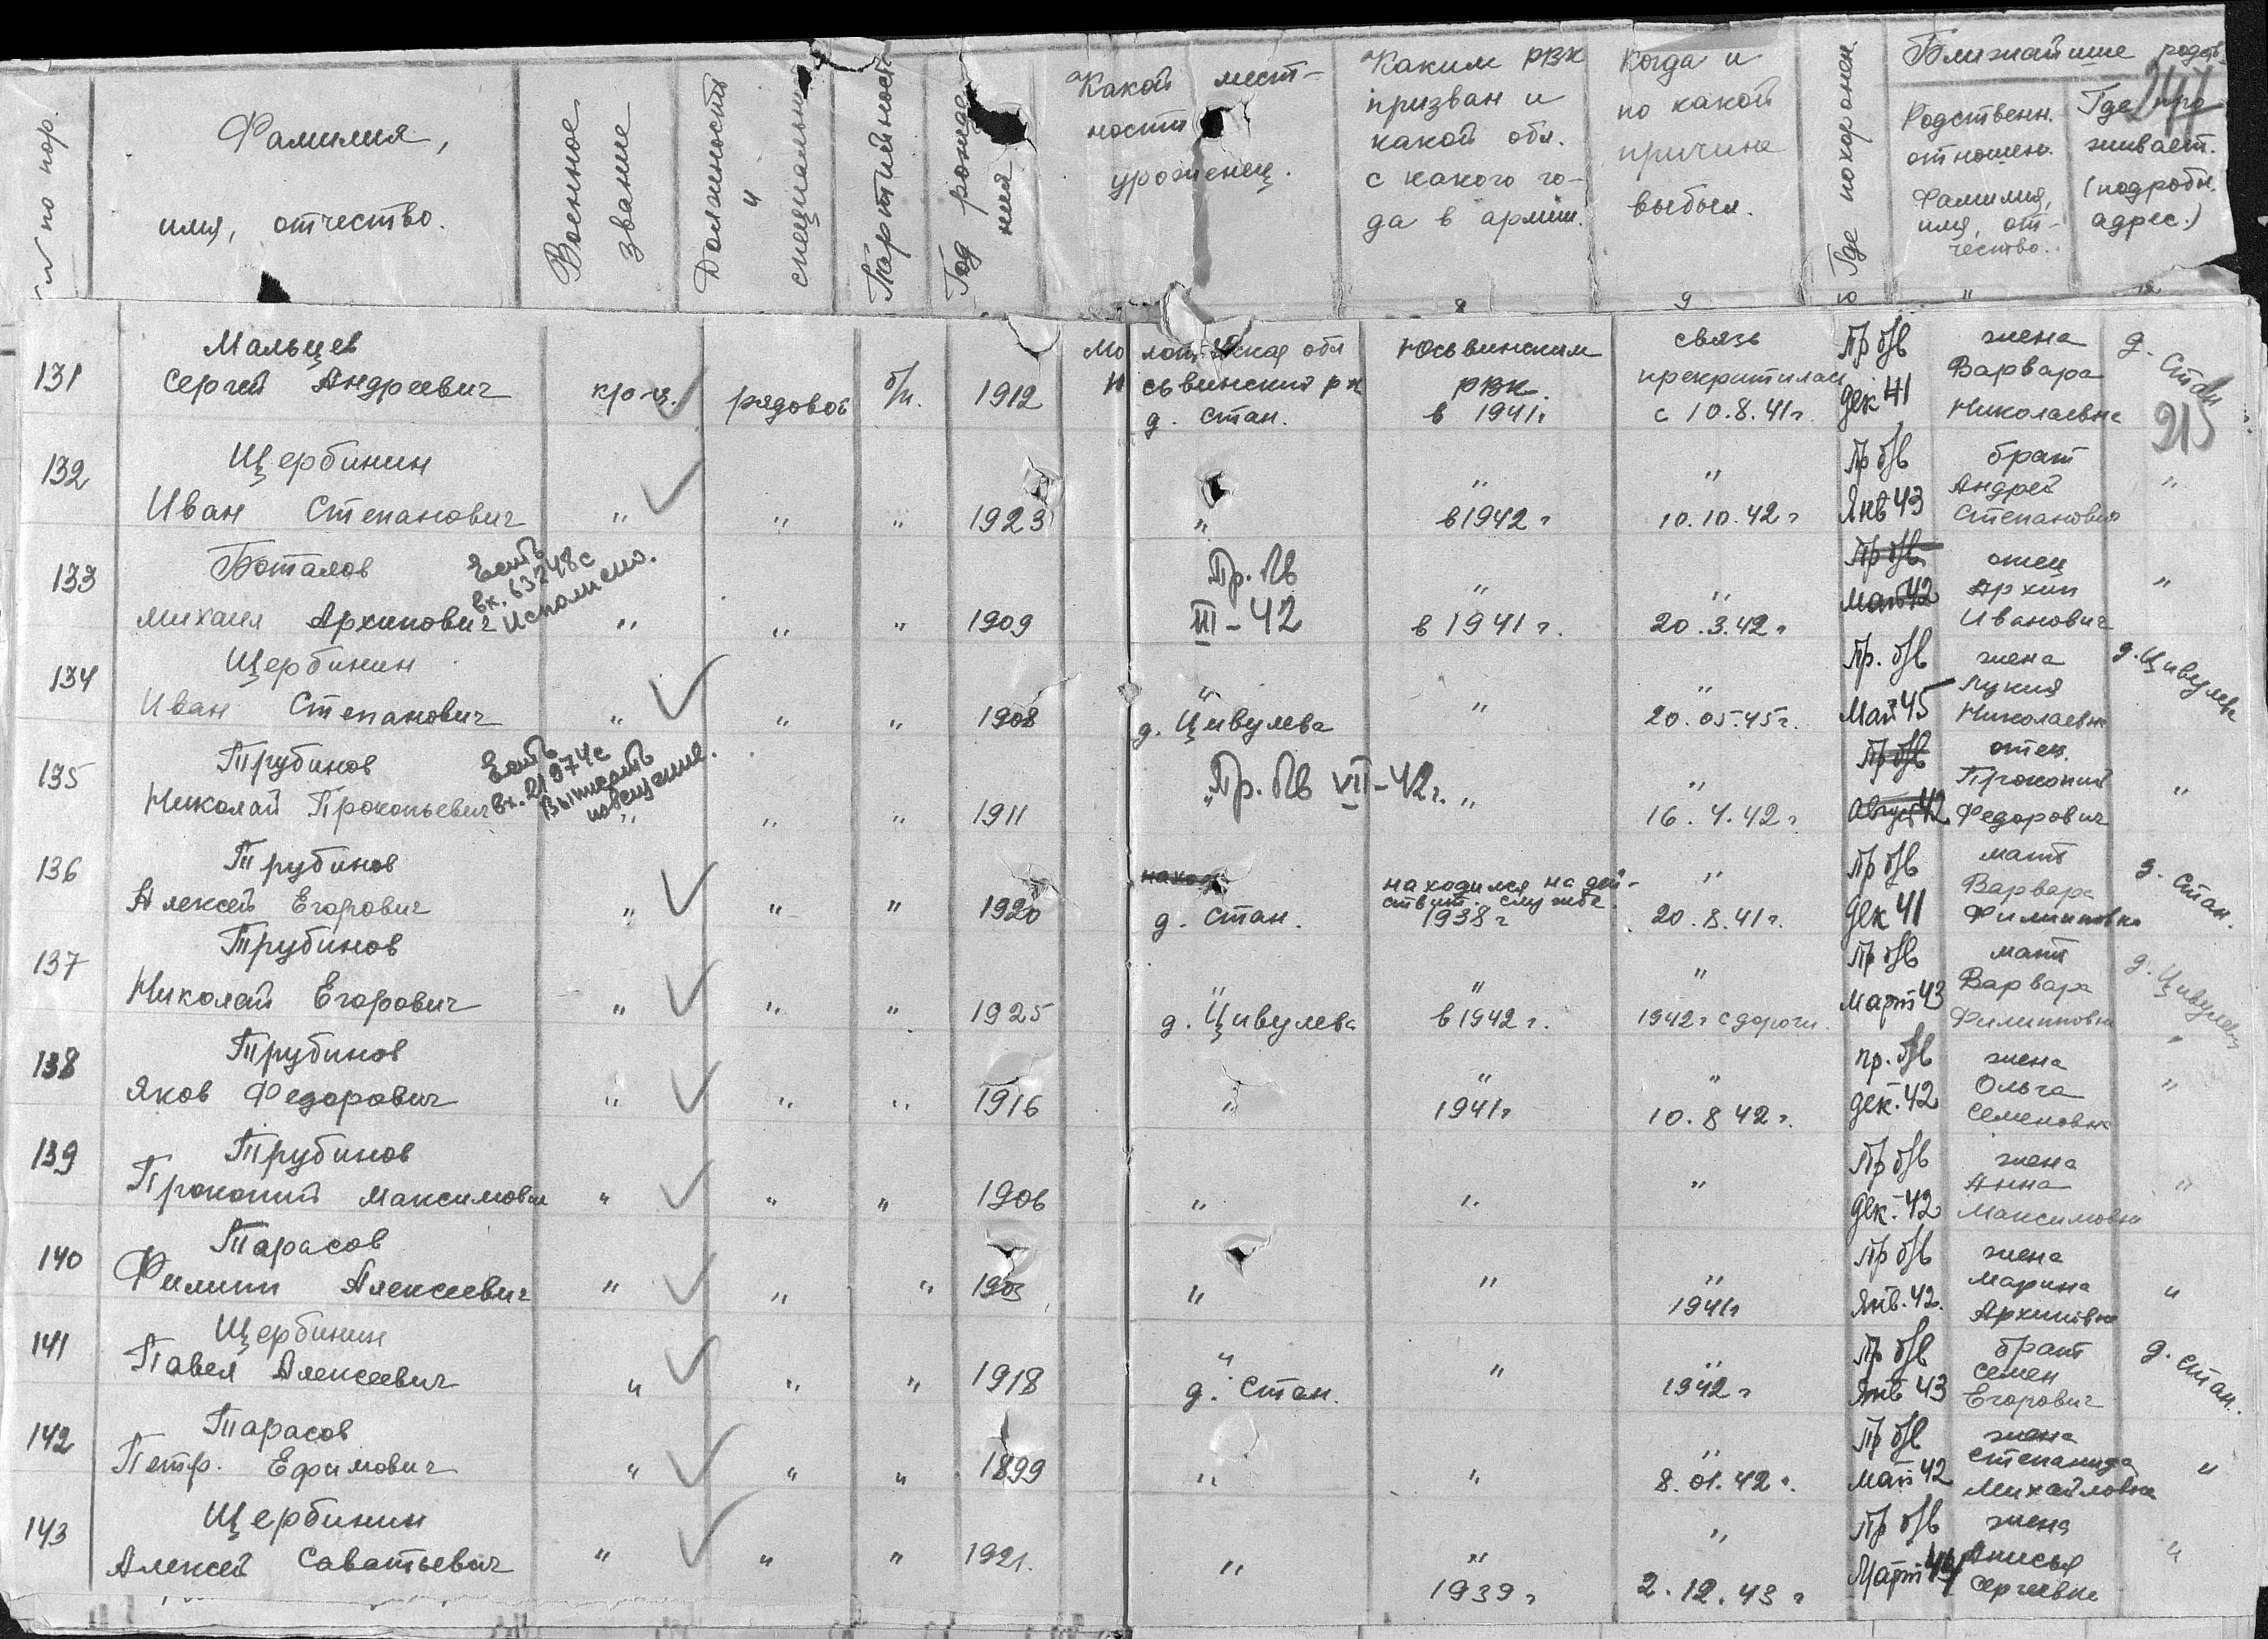 № по пор.
Фамилия,
имя, отчество.
Военное звание
Должность и специальность
Партийность
Год рождения
Какой мест-
ности
уроженец.
Каким РВК
призван и
какой обл.
с какого го-
да в армии.
Когда и
по какой
причине
выбыл.
Где похоронен.
Ближайшие родств.
Родственн.
отношен.
Фамилия,
имя, от-
чество.
Где про
живает.
(подробн.
адрес.)
247
131
Мальцев
Сергей Андреевич
кр-ц.
рядовой
б/п.
1912
обл
д. Стан.
Юсьвинским
РВК.
в 1941г
связь
прекратилась
с 10.8.41г.
Пр б/в
дек 41
жена
Варвара
Николаевна
д. Стан
215
132
Щербинин
Иван Степанович
" " "
1923
"
"
в 1942 г
"
10.10.42 г
Пр б/в
Янв 43
брат
Андрей
Степанович
"
133
Боталов
Михаил Архипович
Есть
вх. 63248с
Исполнено.
" " "
1909
Пр. Пв
III-42
"
в 1941 г.
"
20.3.42 г
Пр б/в
Май 42
отец
Архип
Иванович
"
134
Щербинин
Иван Степанович
" " "
1908
"
д. Цивулева
"
"
20.05.45г.
Пр. б/в
Май 45
жена
Лукия
Николаевна
д. Цивулева
135
Трубинов
Николай Прокопьевич
Есть
вх. 21974с
Выписать
извещение.
" " "
1911
" Пр. Пв VII-42г.
"
"
16.4.42 г
Пр б/в
Август 42
отец.
Прокопий
Федорович
"
136
Трубинов
Алексей Егорович
" " "
1920
наход
д. Стан.
находился на дей-
ствит. службе
1938 г
"
20.8.41г.
Пр б/в
дек 41
мать
Варвара
Филипповна
д. Стан.
137
Трубинов
Николай Егорович
" " "
1925
"
д. Цивулева
"
в 1942 г.
"
1942 г с дороги.
Пр б/в
Март 43
мать
Варвара
Филипповна
д. Цивулева
"
138
Трубинов
Яков Федорович
" " "
1916
"
"
1941г
"
10.8 42 г.
пр. б/в
дек. 42
жена
Ольга
Семеновна
"
139
Трубинов
Прокопий Максимович
" " "
1906
"
"
"
Пр б/в
Дек. 42
жена
Анна
Максимовна
"
140
Тарасов
Филипп Алексеевич
" " "
1903
"
"
"
1941г
Пр б/в
Янв. 42.
жена
Марина
Архиповна
"
141
Щербинин
Павел Алексеевич
" " "
1918
"
д. Стан.
"
"
1942 г
Пр б/в
Янв 43
брат
Семен
Егорович
д. Стан.
142
Тарасов
Петр. Ефимович
" " "
1899
"
"
"
8.01.42 г.
Пр б/в
май 42
жена
Степанида
Михайловна
"
143
Щербинин
Алексей Саватьевич
" " "
1921.
"
"
1939 г
"
2.12.43 г
Пр б/в
Март 44
жена
Анисья
Сергеевна
"